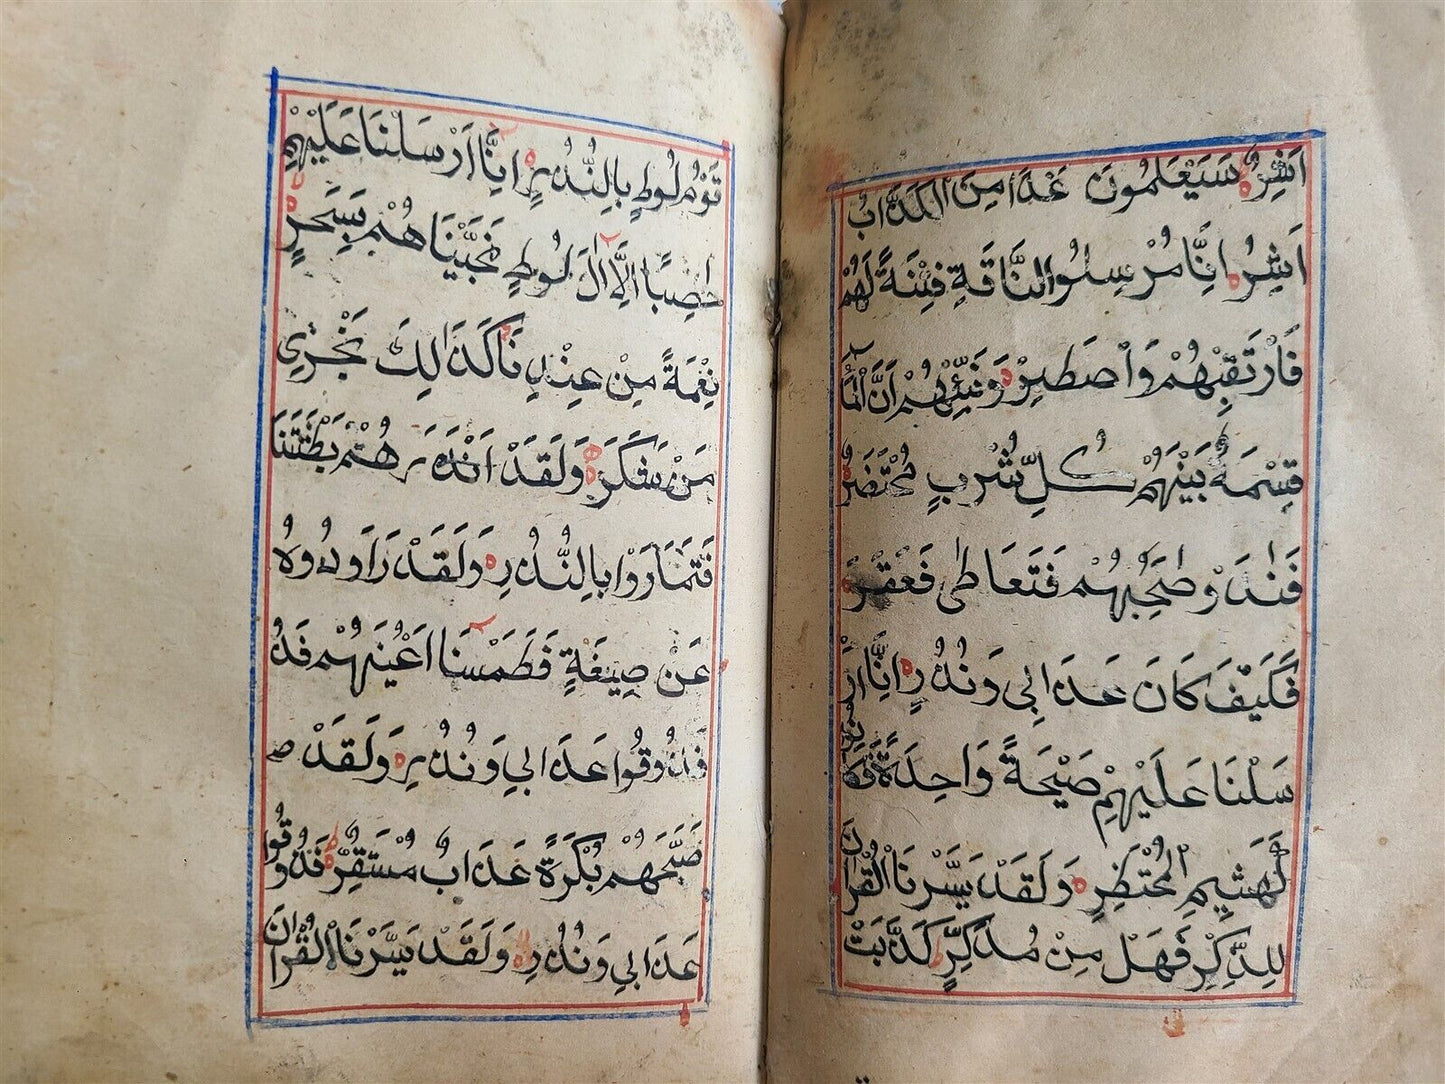 اَشِرٌ سَيَعْلَمُونَ غَدًا مِنَ الْكَذَّابُ
اَشِرُ اِنَّا مُرْسِلُوا النَّاقَةِ فِتْنَةً لَهُمْ
فَارْتَقِبْهُمْ وَاصْطَبِرْ وَنَبِّئْهُمْ اَنَّ الْمَا
قِسْمَةٌ بَيْنَهُمْ كُلُّ شُرْبٍ مُحْتَضَرٌ
فَنَادَوْ صٰحِبُهُمْ فَتَعَاطٰى فَعَقَرَ
فَكَيْفَ كَانَ عَذَابِي وَنُذُرِ اِنَّا اَرْ
سَلْنَا عَلَيْهِمْ صَيْحَةً وَاحِدَةً فَكَانُو
لَهَشِيمِ الْمُحْتَظِرِ وَلَقَدْ يَسَّرْنَا الْقُرْاٰنَ
لِلذِّكْرِ فَهَلْ مِنْ مُدَّكِرٍ كَذَّبَتْ
قَوْمُ لُوطٍ بِالنُّذُرِ اِنَّا اَرْسَلْنَا عَلَيْهِمْ
حَاصِبًا اِلَّا اٰلَ لُوطٍ نَجَّيْنَاهُمْ بِسَحَرٍ
نِعْمَةً مِنْ عِنْدِنَا كَذَالِكَ نَجْزِي
مَنْ شَكَرَ وَلَقَدْ اَنْذَرَهُمْ بَطْشَتَنَا
فَتَمَارَوْا بِالنُّذُرِ وَلَقَدْ رَاوَدُوهُ
عَنْ ضَيْفِهِ فَطَمَسْنَا اَعْيُنَهُمْ فَذُ
فَذُوقُوا عَذَابِي وَنُذُرِ وَلَقَدْ صـ
صَبَّحَهُمْ بُكْرَةً عَذَابٌ مُسْتَقِرٌّ فَذُوقُوا
عَذَابِي وَنُذُرِ وَلَقَدْ يَسَّرْنَا الْقُرْاٰنَ